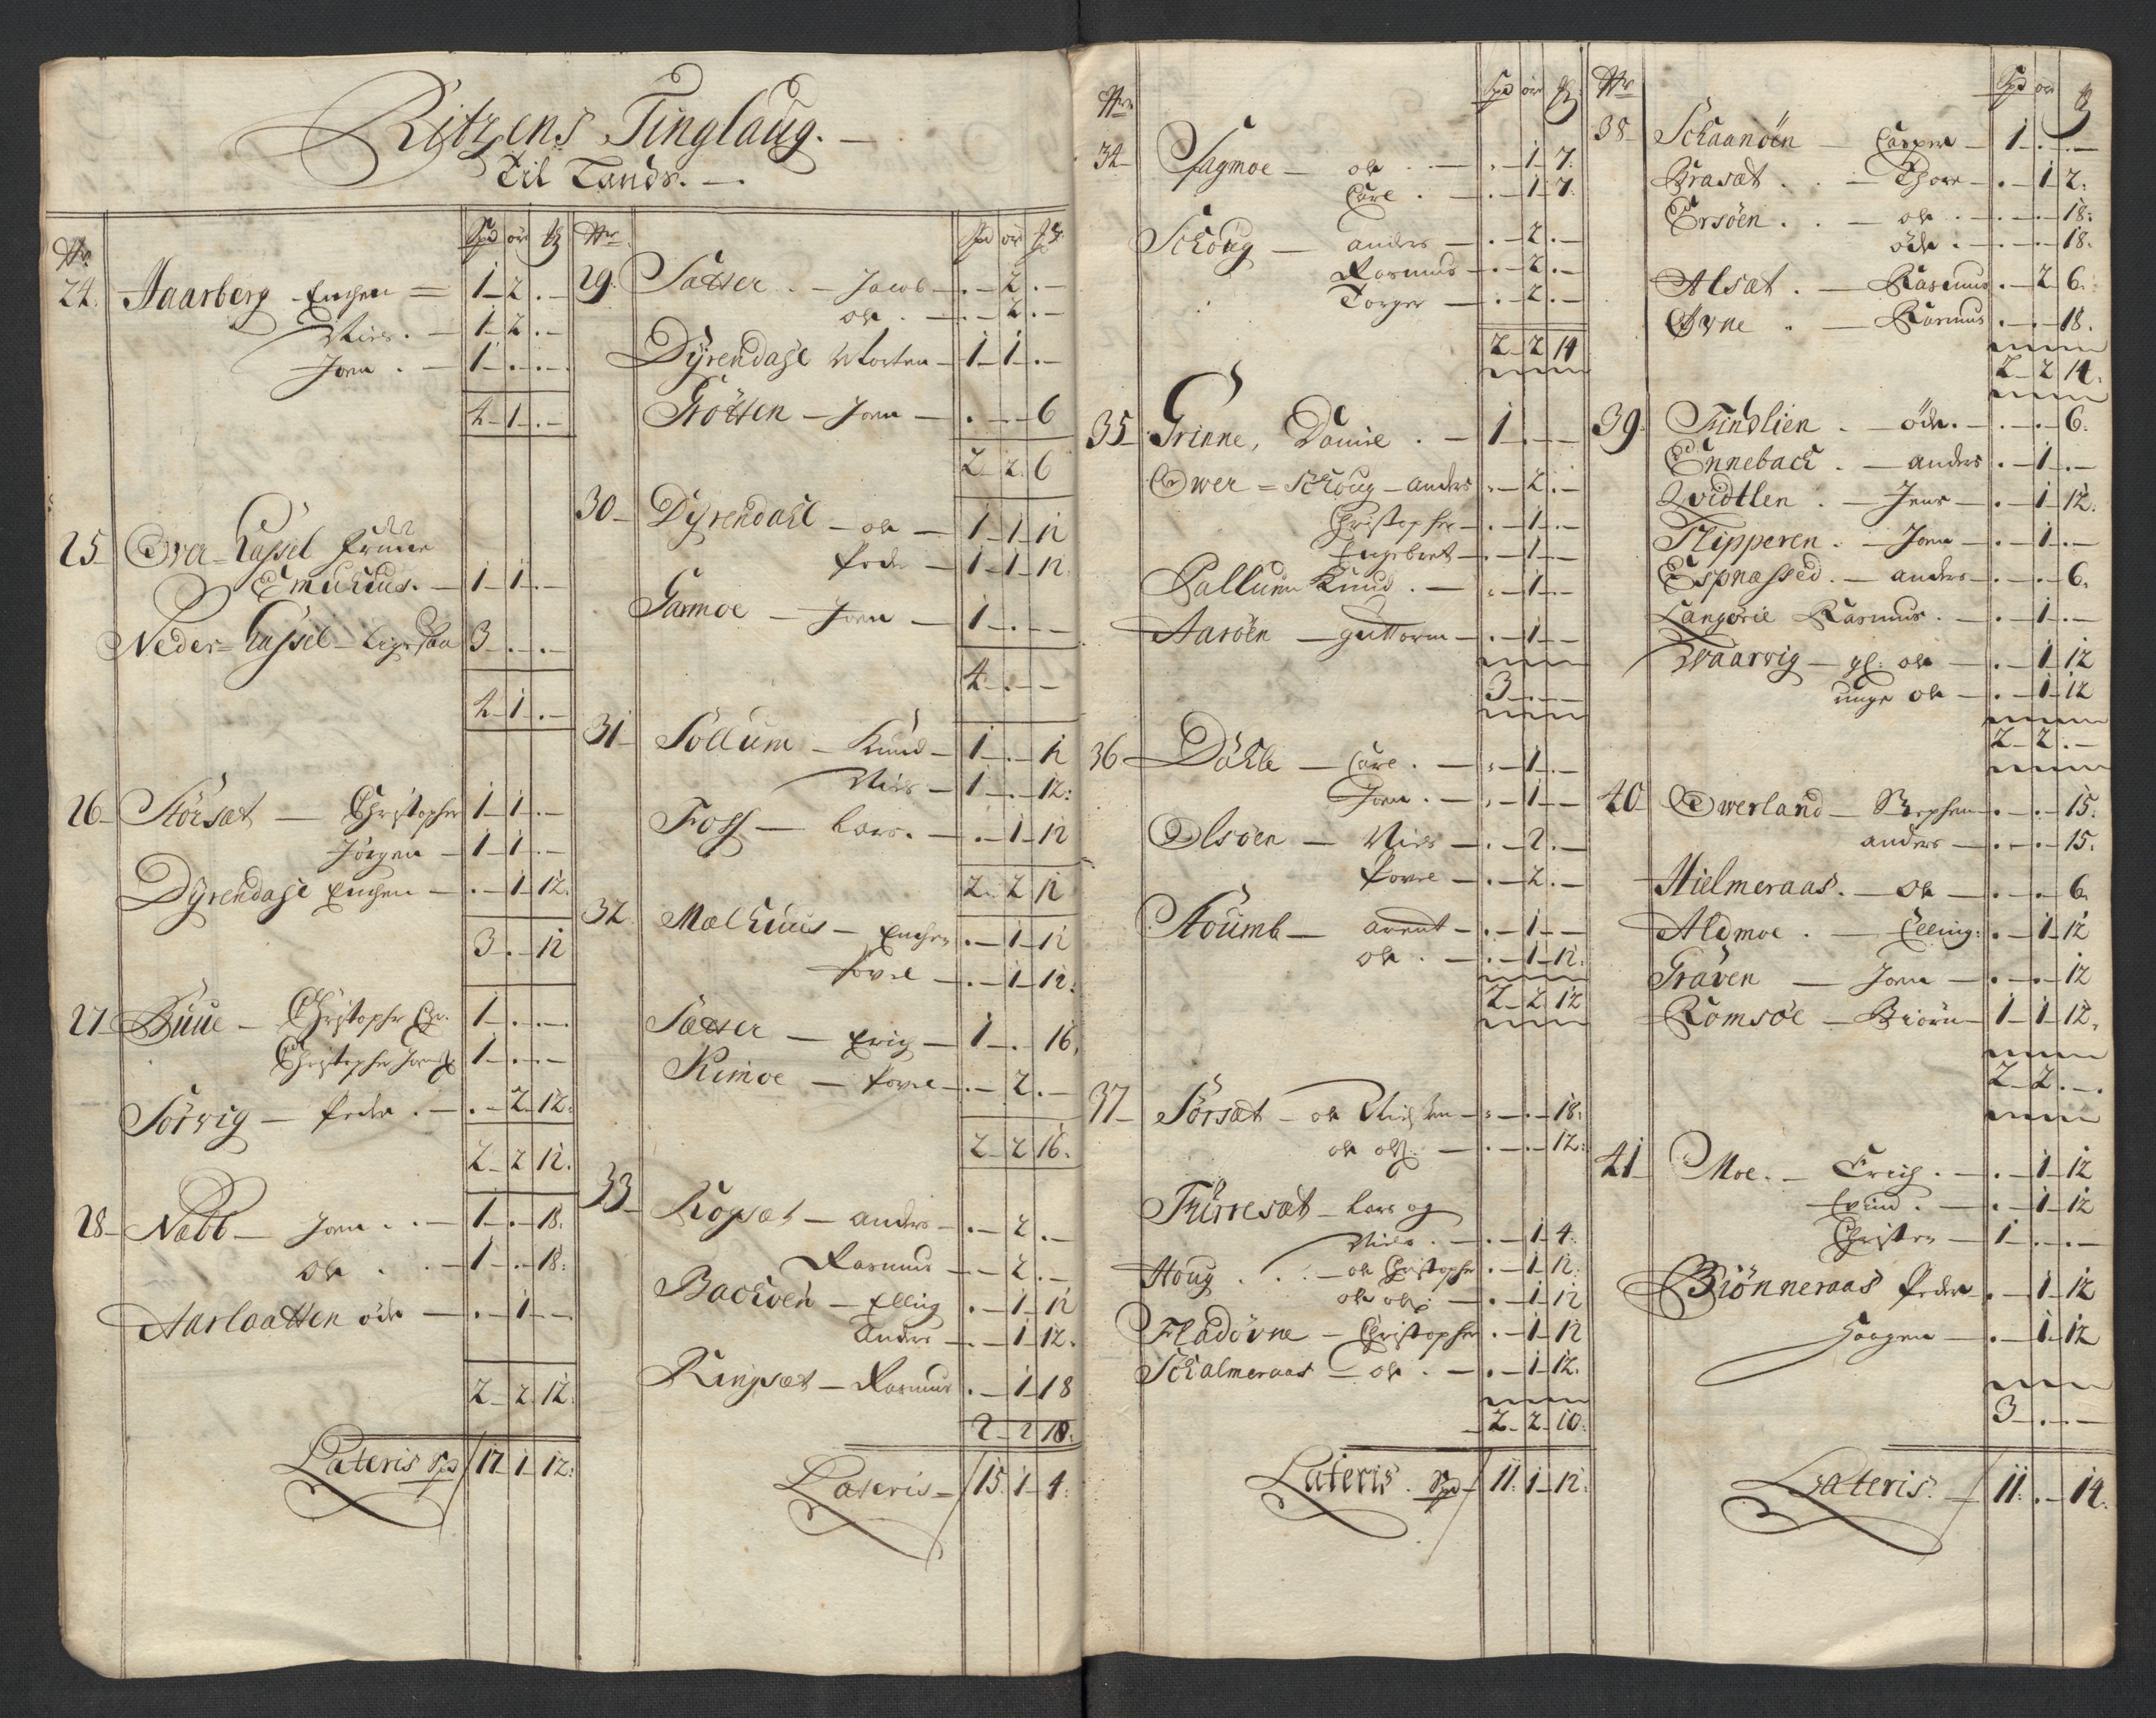 Ritzens Tinglaug. —
Til Lands. —
Nr Spd ør
24. Aarberg Enchen = 1 – 2 . –
Niels . – 1 – 2 . –
Joen . – 1 – . – . –
4 – 1 . –
25 Over – Hassel
Emichius. – 1 – 1 . –
Neder = Hassel – 3 – . – . –
4 – 1 . –
26 Störsæt — Christopher 1 – 1 . –
Jörgen – 1 – 1 . –
Dÿrendahl Enchen – . – 1 – 12.
3 – . – 12
27 Buue – Christopher Chr. 1 – . – . –
Christopher 1 – . – . –
Sörvig – Peder . – . – 2 – 12.
2 – 2 12.
28 Næbb – Joen . . – 1 – . – 18.
Ole . . – 1 – . – 18.
Aarlaatten öde — . – 1 – –
2 – 2 12.
Lateris Spd 17 – 1 – 12:
Nr Spd ør
29. Sætter . – Jacob – . – 2 . –
Ole . – . – 2 . –
Dÿrendahl Morten – 1 – 1 . –
Grötten – Joen – . – – 6
2 – 2. 6
30 Dÿrendahl – Ole – 1 – 1 – 12
Peder – 1 – 1 – 12.
Garmoe – Joen – 1 – . – –
4 – . – –
31 Sollum – Knud – 1 – . – 12
Niels – 1 – . – 12:
Foss – Lars. – . – 1 – 12
2 – 2 12
32 Mælhuus – Enchen . – 1 – 12
Povel – . – 1 – 12:
Sætter — Erich – 1 – . 16.
Rimoe – Povel – . – 2 . –
2 – 2 16.
33 Kogsæt – Anders – . – 2 . –
Rasmus – – 2 . –
Backen – Elling . – 1 – 12
Anders – . – 1 – 12.
Ringsæt – Rasmus . – 1 – 18
2 – 2 18.
Lateris – 15. 1 – 4.
Nr Spd ør
34 Fagmoe — Ole . . – . – 1 – 7.
Carl . – . – 1 – 7.
Schoug — Anders – . – 2 . –
Rasmus – . – 2 . –
Torger – . – 2 . –
2 – 2 14
35 Grinne, . – 1 . – –
Over = Schoug – Anders . – 2 . –
Christopher – . – 1 . –
Engebret – . – 1 – –
Pallum Knud . – . – 1 . –
Aasöen – Guttorm – . – 1 – –
3 – . – –
36 Döhle – Carl . – . – 1 . –
Joen . – . – 1 – –
Olsöen – Niels – . – 2 . –
Povel – . – 2 . –
Stoumb – Arent – . – 1 – –
Ole . – . – 1 – 12:
2 – 2 12
37 Sörsæt – Ole – . – . – 18.
Ole Ols. – . – . – 12:
Fürresæt – Lars og
Niels . – . – 1 4.
Houg . . . – Ole Christopher . – 1 – 12.
Ole Ols. – . – 1 – 12
Fladövne – Christopher . – 1 – 12
Schalmeraas – Ole . – . – 1 – 12.
2 – 2 – 10.
Lateris. Spd 11. 1 – 12.
Nr Spd or
38 Schaanöen — Casper – 1 – . – –
Bræsæt . . – Thore – . – 1 – 2.
Ersöen . . – Ole . – . – . – 18.
öde . – . – . – 18.
Alsæt . – Rasmus . – 2 6.
Övne . – Rasmus . – . – 18.
2 – 2 14.
39 Findlien . – öde. – . – . – 6.
Enneback . – Anders . – 1 . –
Qvidtlen . – Jens – . – 1 – 12.
Flipperen . – Joen – . – 1 . –
Espnæssed . – Anders – . – . – 6.
Langörie Rasmus . – . – 1 . –
Waarvig – gl: Ole – . – 1 12
unge Ole – . – 1 – 12
2 – 2 . –
40 Overland – Stephen . – . – 15.
Anders – . – . – 15.
Hielmeraas. – Ole – . – . – 6.
Aldmoe . — Elling: . – 1 – 12
Gräven — Joen – . – . – 12
Romsöe – Biörn – 1 – 1 – 12.
2 – 2 . – .
41 Moe . – Erich . – . – 1 – 12
Evind . – . – 1 – 12
Christen – 1 – . – . –
Biönneraas Peder – . – 1 – 12
Haagen – . – 1 – 12
3 – . – –
Lateris. – 11: . – 14.